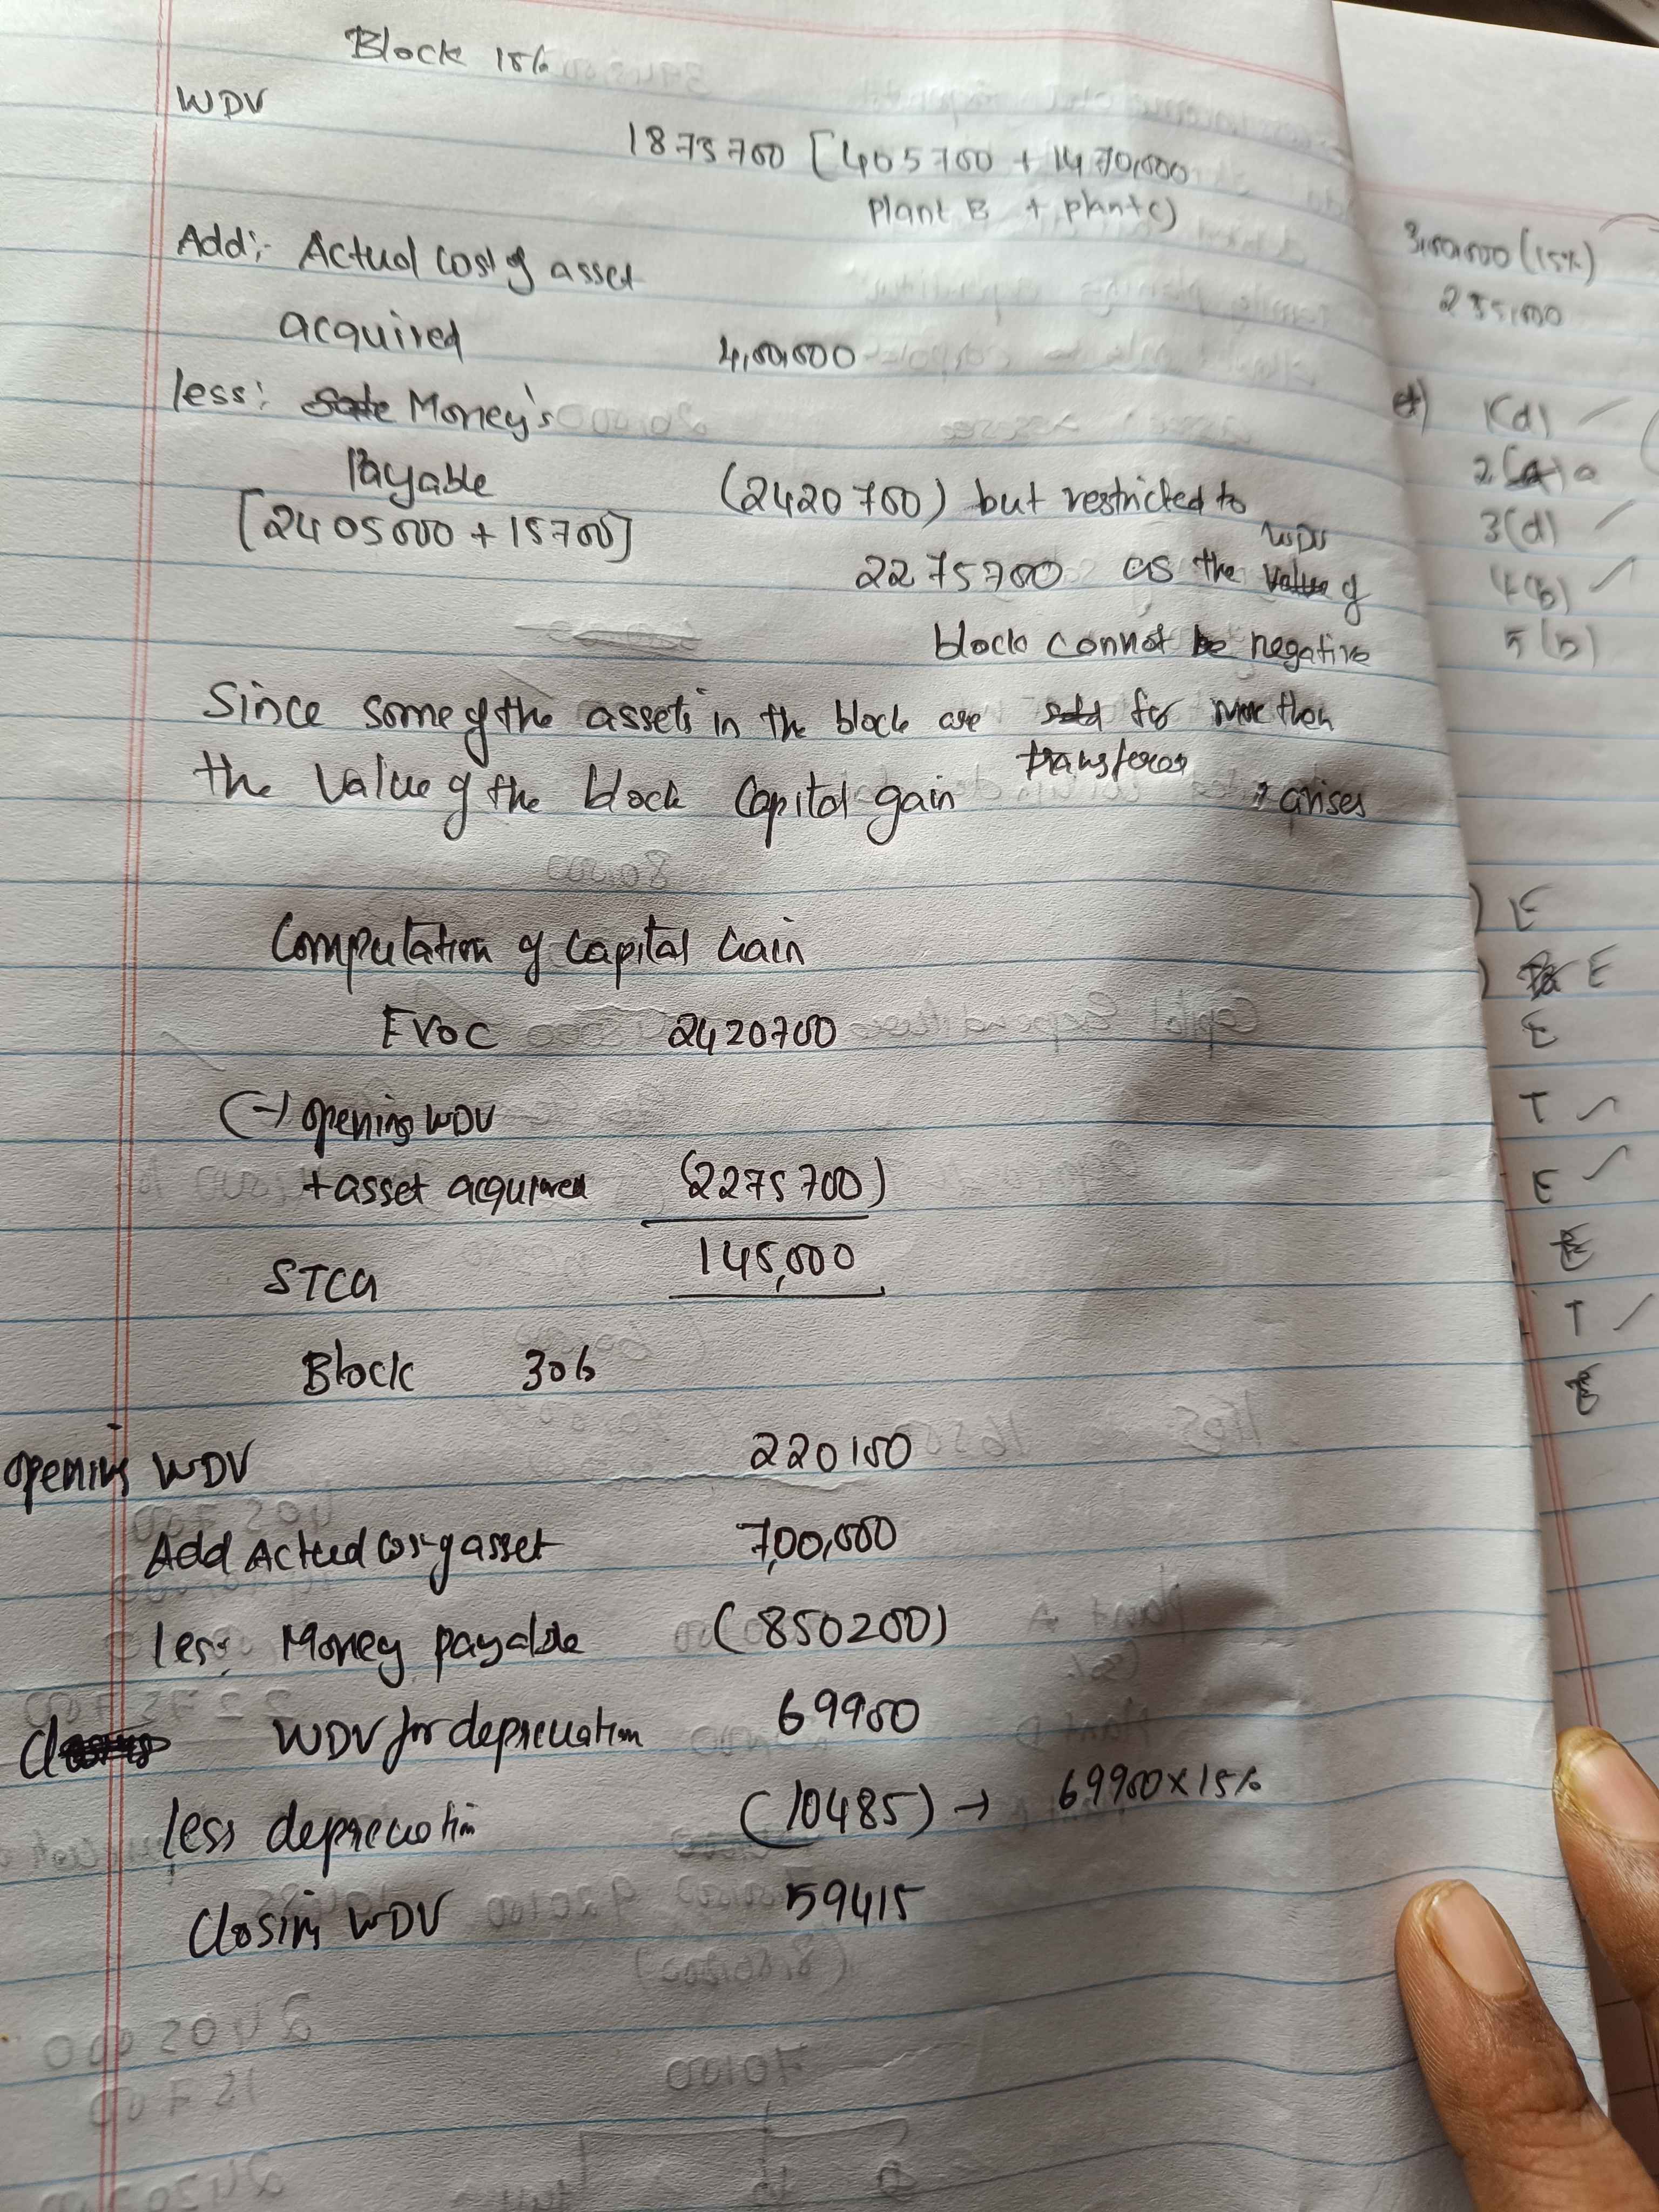 Block 15%
WDV
1875700 [405700 + 1470,000
Plant B + plant C)
Add:- Actual cost of asset
acquired 4,00,000
less: Money's
Payable (2420700) but restricted to
[2405000 + 15700] WDV
2275700 as the of
block cannot be negative
Since some of the assets in the block are for more than
transferer
the value of the block capital gain arises
Computation of Capital Gain
FVOC 2420700
(-) opening WDV
+ asset acquired (2275700)
STCG 145,000
Block 30%
opening WDV 220100
Add Actual cost of asset 7,00,000
less: Money payable (850200)
WDV for depreciation 69900
less depreciation (10485) → 69900 x 15%
Closing WDV 59415
3,00,000 (15%)
255,000
1(d)
2 a
3(d)
4(b)
5(b)
E
E
E
T
E
T